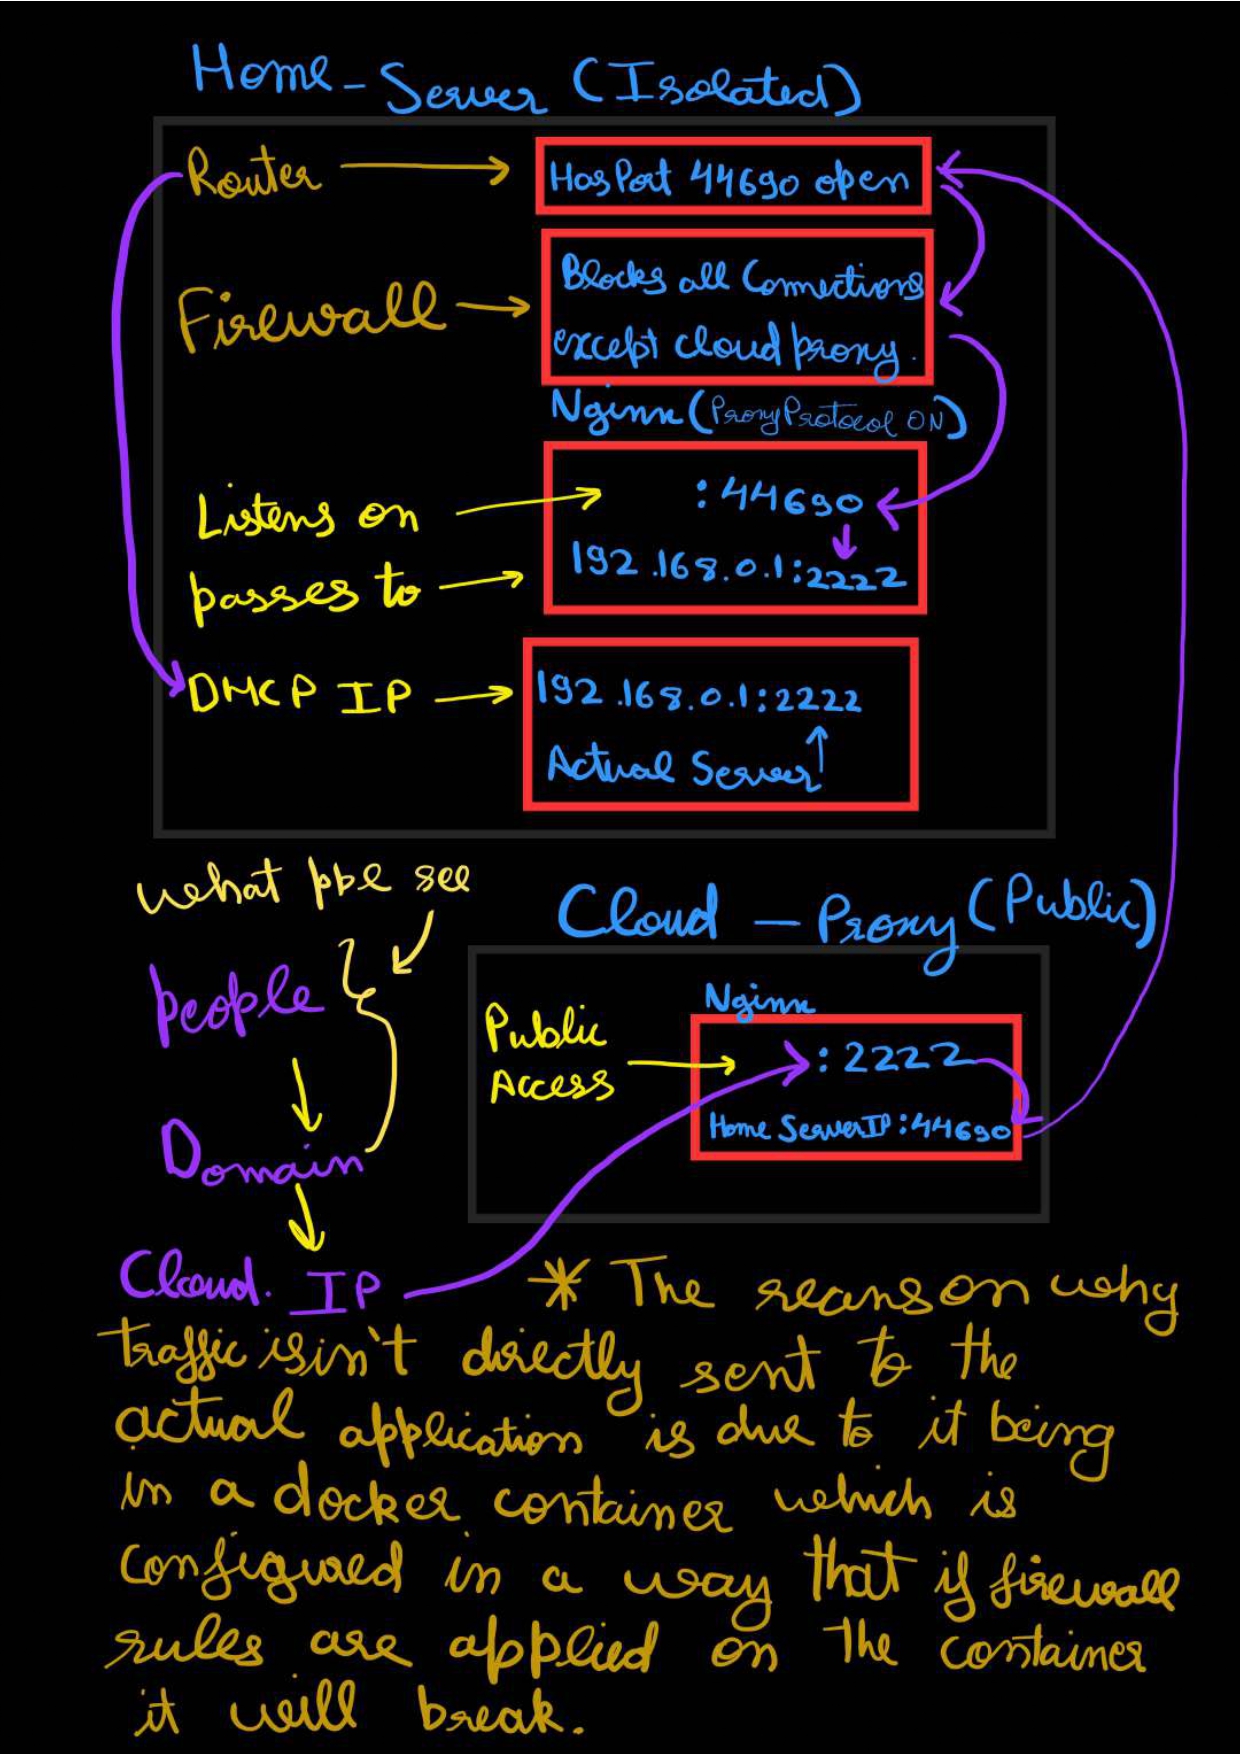 Home-Server (Isolated)
Router
Has Port 44690 open
Firewall
Blocks all Connections
except cloud proxy.
Nginx (ProxyProtocol ON)
Listens on
:44690
passes to
192.168.0.1:2222
DMCP IP
192.168.0.1:2222
Actual Server
what ppl see
Cloud - Proxy (Public)
people
Nginx
Public
Access
:2222
Home ServerIP:44690
Domain
Cloud. IP
* The reanson why
traffic isin't directly sent to the
actual application is due to it being
in a docker container which is
configured in a way that if firewall
rules are applied on the container
it will break.